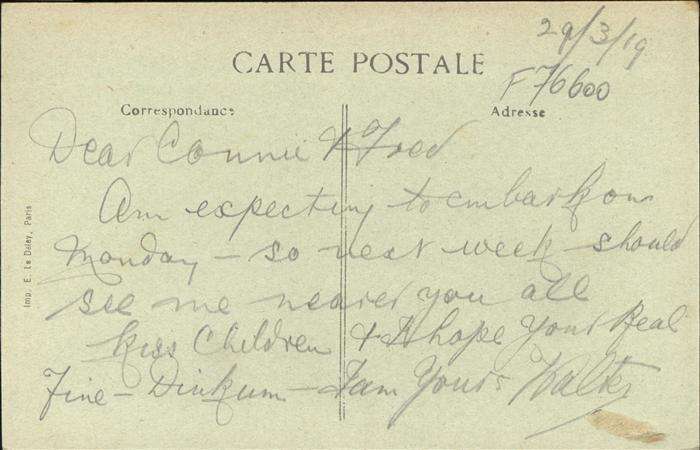 29/3/19
CARTE POSTALE
F76600
Correspondance
Adresse
Dear Connie & Fred
Am expecting to embark on
Monday - so next week should
see me nearer you all
Kiss Children & I hope your Real
Fine - Dinkum - I am Yours Walter
Imp. E. Le Deley, Paris